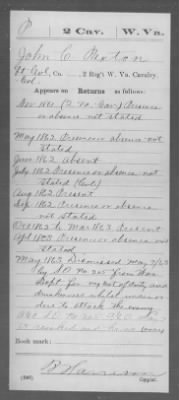 P 2 Cav. W. Va.
John C. Paxton
Lt Col., Co. , 2 Reg't W. Va. Cavalry.
Col.
Appears on
Returns as follows:
Nov 1861 (2 Va. Cav) Presence
or absence not stated
May 1862 Presence or absence not
stated
June 1862 Absent
July 1862 Presence or absence not
stated (Col)
Aug 1862 Present
Sep. 1862 Presence or absence
not stated
Dec 1862 to Mar 1863 Present
Presence or absence not
stated
May 1863 Dismissed May 7/63
by S.O. No 205 from War
Dept. for neglect of duty and
drunkenness whilst under
to attack the enemy
Book mark:
Copyist.